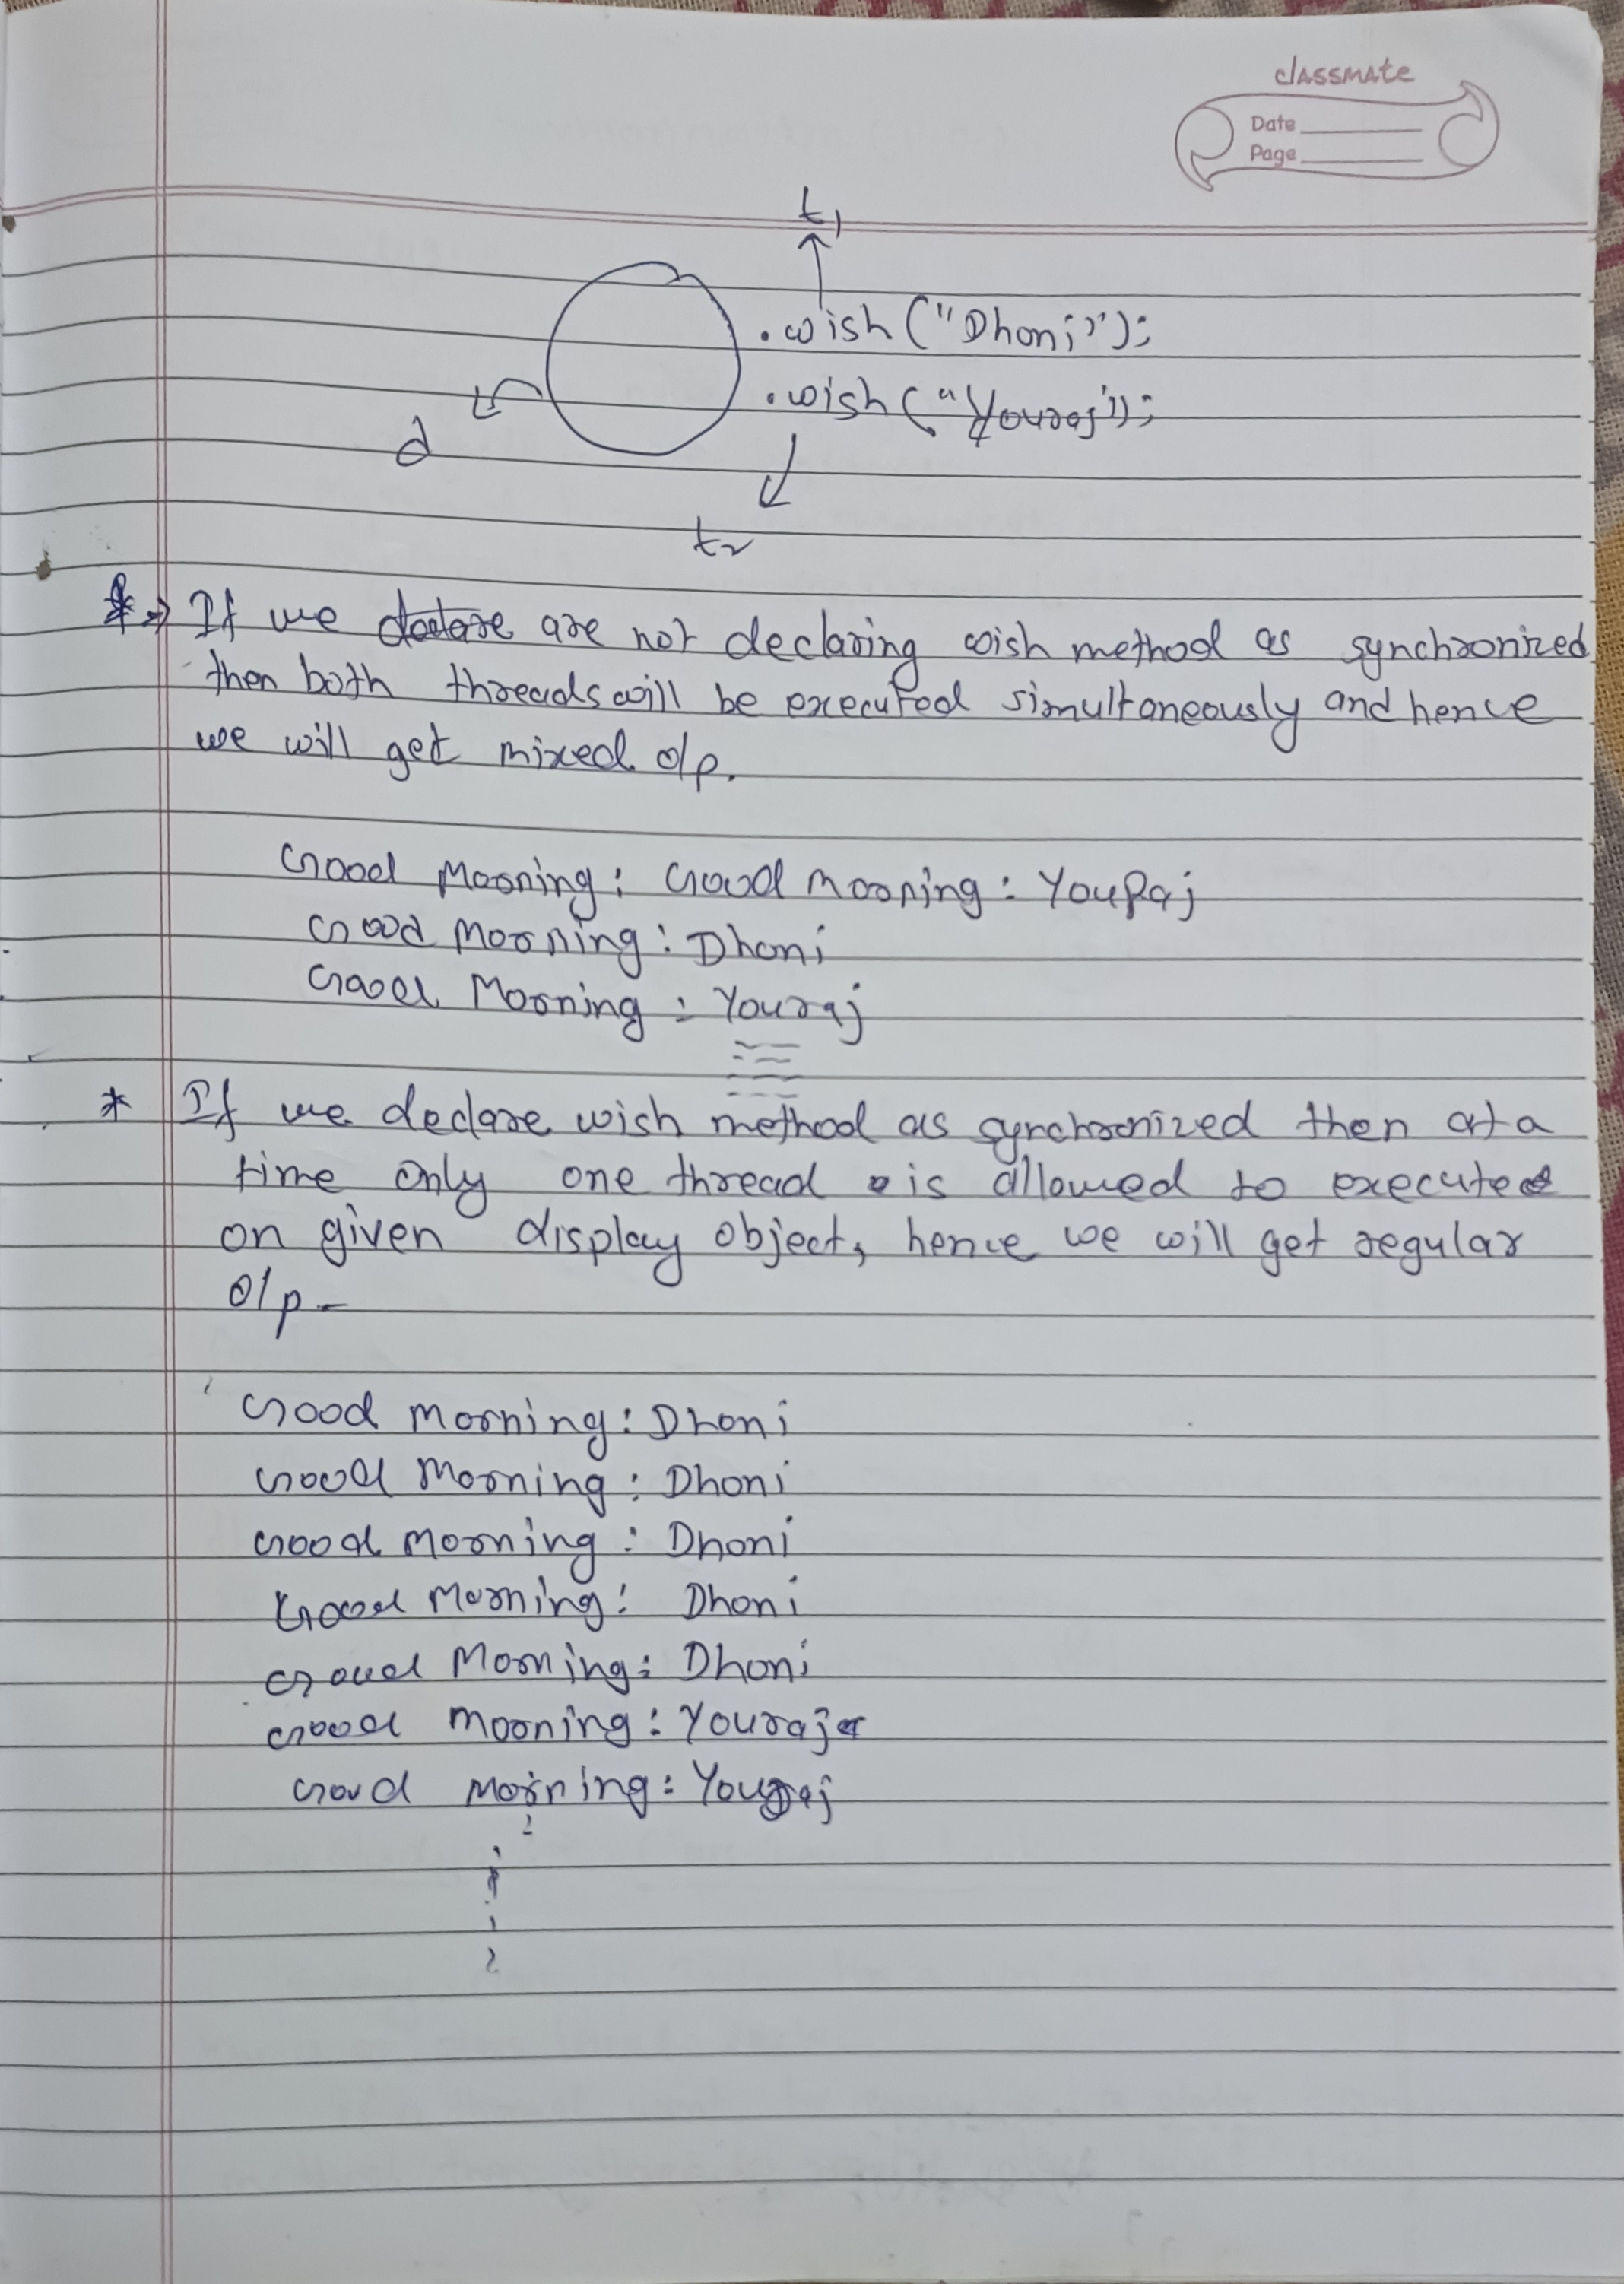 classmate
Date
Page
t1
.wish ("Dhoni");
.wish ("Youraj");
d
t2
*→ If we declare are not declaring wish method as synchronized
then both threads will be executed simultaneously and hence
we will get mixed o/p.
Good Morning: Good morning: YouRaj
Good Morning: Dhoni
Good Morning: Youraj
* If we declare wish method as synchronized then at a
time only one thread is allowed to execute
on given display object, hence we will get regular
o/p-
Good morning: Dhoni
Good Morning: Dhoni
Good Morning: Dhoni
Good Morning: Dhoni
Good Morning: Dhoni
Good Morning: Youraj
Good Morning: Youraj